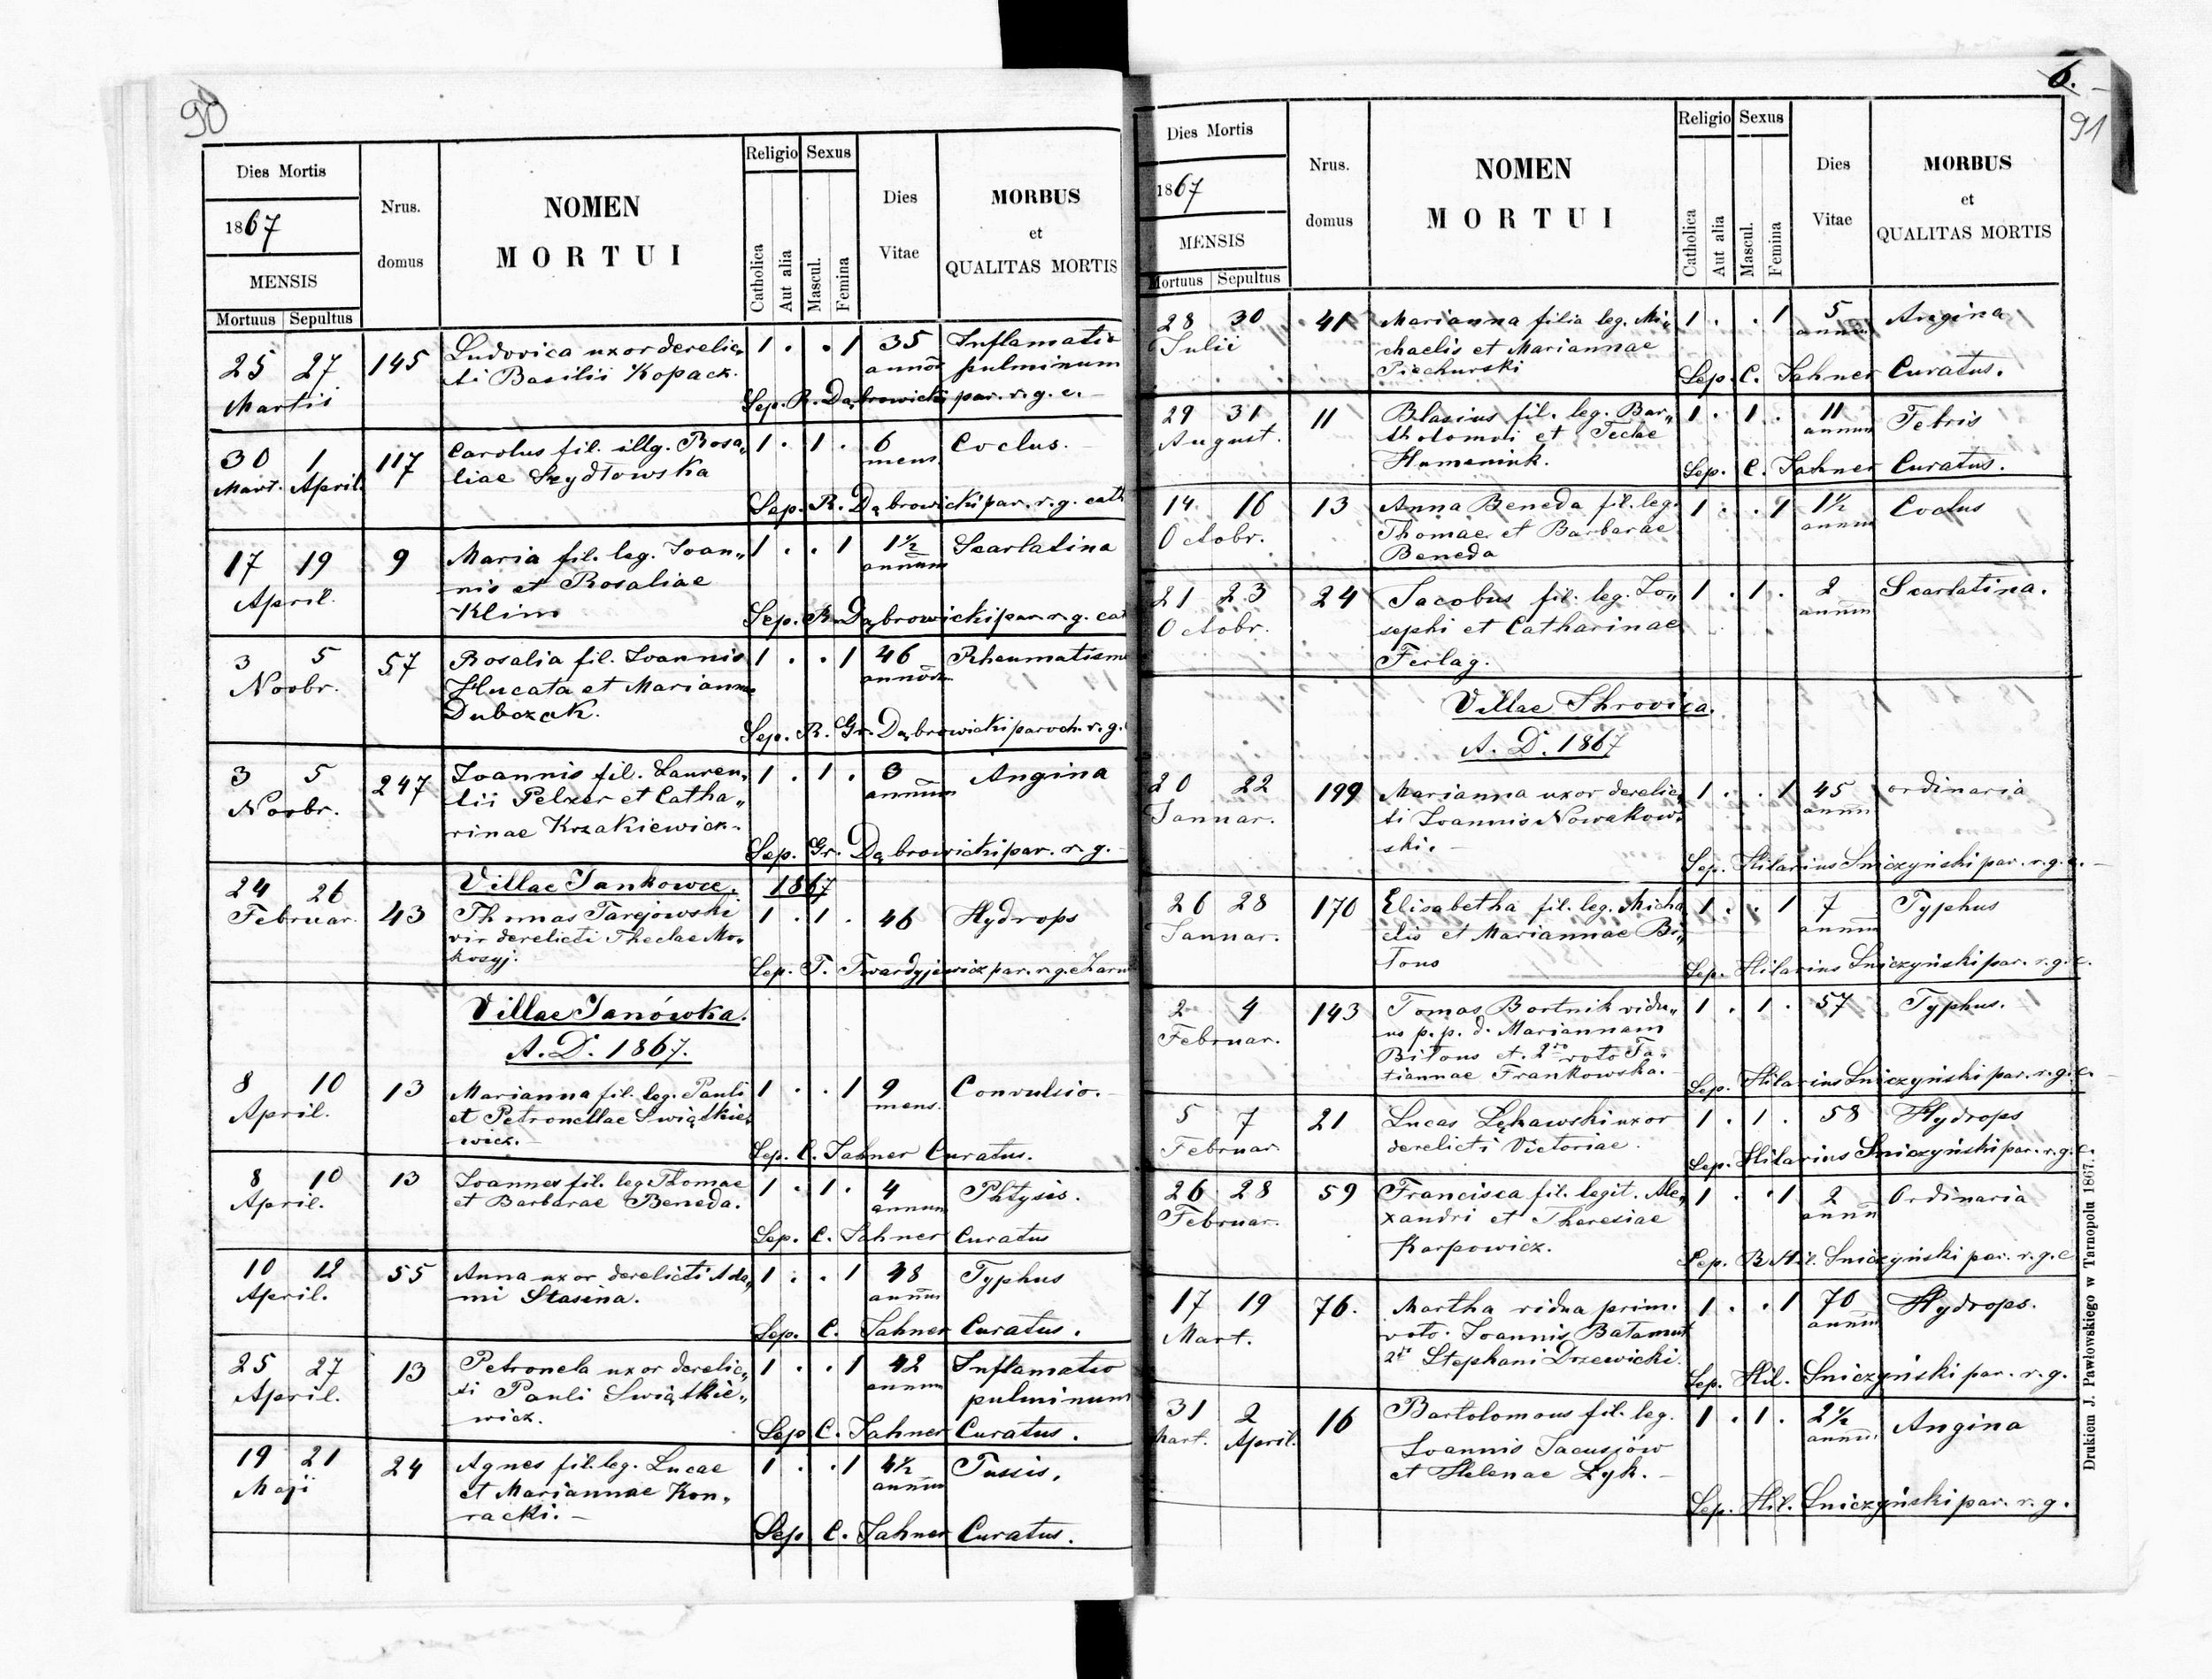 90
Dies Mortis
1867
MENSIS
Mortuus Sepultus
Nrus.
domus
NOMEN
MORTUI
Religio Sexus
Catholica
Aut alia
Mascul.
Femina
Dies
Vitae
MORBUS
et
QUALITAS MORTIS
25 27 145 Ludovica uxor derelic„ 1 . . 1 35 Inflamatio
Martii ti Basilii Kopacz. annor pulminum
Sep. R. Dąbrowicki par. r. g. c.
30 1 117 Carolus fil. illg. Rosa„ 1 . 1 . 6 Coclus.
Mart. April. liae Szydłowska mens.
Sep. R. Dąbrowicki par. r. g. cath
17 19 9 Maria fil. leg. Ioan„ 1 . . 1 1½ Scarlatina
April. nis et Rosaliae annum
Klim
Sep. R. Dąbrowicki par. r. g. cat
3 5 57 Rosalia fil. Ioannis 1 . . 1 46 Rheumatisme
Novbr. Hucata et Mariannae annor
Dubczak.
Sep. R. Gr. Dąbrowicki paroch. r. g.
3 5 247 Ioannis fil. Lauren„ 1 . 1 . 3 Angina
Novbr. tii Pelzer et Catha„ annum
rinae Krzakiewicz.
Sep. Gr. Dąbrowicki par. r. g.
Villae Iankowce. 1867
24 26 43 Thomas Tarejowski 1 . 1 . 46 Hydrops
Februar. vir derelicti Theclae Mo„
kosyj.
Sep. T. Twardyjewicz par. r. g.
Villae Ianówka.
A. D. 1867.
8 10 13 Marianna fil. leg. Pauli 1 . . 1 9 Convulsio.
April. et Petronellae Swiątkie„ mens.
wicz.
Sep. C. Jahner Curatus.
8 10 13 Ioannes fil. leg Thomae 1 . 1 . 4 Phtysis.
April. et Barbarae Beneda. annum
Sep. C. Jahner Curatus
10 12 55 Anna uxor derelicti Ada„ 1 . . 1 48 Typhus
April. mi Stasena. annum
Sep. C. Jahner Curatus.
25 27 13 Petronela uxor derelic„ 1 . . 1 42 Inflamatio
April. ti Pauli Swiątkie„ annum pulminum
wicz.
Sep C. Jahner Curatus.
19 21 24 Agnes fil. leg. Lucae 1 . . 1 4½ Tussis.
Maji et Mariannae Kon„ annum
racki.
Sep. C. Jahner Curatus.
6.
91
Dies Mortis
1867
MENSIS
Mortuus Sepultus
Nrus.
domus
NOMEN
MORTUI
Religio Sexus
Catholica
Aut alia
Mascul.
Femina
Dies
Vitae
MORBUS
et
QUALITAS MORTIS
28 30 41 Marianna filia leg. Mi„ 1 . . 1 5 Angina
Iulii chaelis et Mariannae annum
Piechurski
Sep. C. Jahner Curatus.
29 31 11 Blasius fil. leg. Bar„ 1 . 1 . 11 Febris
August. tholomoi et Teclae annum
Humeniuk.
Sep. C. Jahner Curatus.
14 16 13 Anna Beneda fil. leg. 1 . . 1 1½ Coclus
Octobr. Thomae et Barbarae annum
Beneda
21 23 24 Iacobus fil. leg. Io„ 1 . 1 . 2 Scarlatina.
Octobr. sephi et Catharinae annum
Ferlag.
Villae Ihrovica.
A. D. 1867
20 22 199 Marianna uxor derelic„ 1 . . 1 45 ordinaria
Ianuar. ti Ioannis Nowakow„ annum
ski.
Sep. Hilarius Sniczyński par. r. g. c.
26 28 170 Elisabetha fil. leg. Micha„ 1 . . 1 7 Typhus
Ianuar. elis et Mariannae Bi„ annum
tous
Sep. Hilarius Sniczyński par. r. g. c.
2 4 143 Tomas Bortnik vidu„ 1 . 1 . 57 Typhus.
Februar. us p. p. d. Mariannam
Bitous et. 2do voto Ta„
tiannae Frankowska.
Sep. Hilarius Sniczyński par. r. g. c.
5 7 21 Lucas Lękawski uxor 1 . 1 . 58 Hydrops
Februar. derelicti Victoriae.
Sep. Hilarius Sniczyński par. r. g. c.
26 28 59 Francisca fil. legit. Ale„ 1 . . 1 2 Ordinaria
Februar. xandri et Theresiae annum
Karpowicz.
Sep. B Hil. Sniczyński par. r. g. c
17 19 76. Martha vidua prim. 1 . . 1 70 Hydrops.
Mart. voto. Ioannis Batamut annum
2do Stephani Drzewicki.
Sep. Hil. Sniczyński par. r. g.
31 2 16 Bartolomous fil. leg. 1 . 1 . 2½ Angina
Mart. April. Ioannis Iacusjów annum
et Helenae Łyk.
Sep. Hil. Sniczyński par. r. g.
Drukiem J. Pawłowskiego w Tarnopolu 1867.